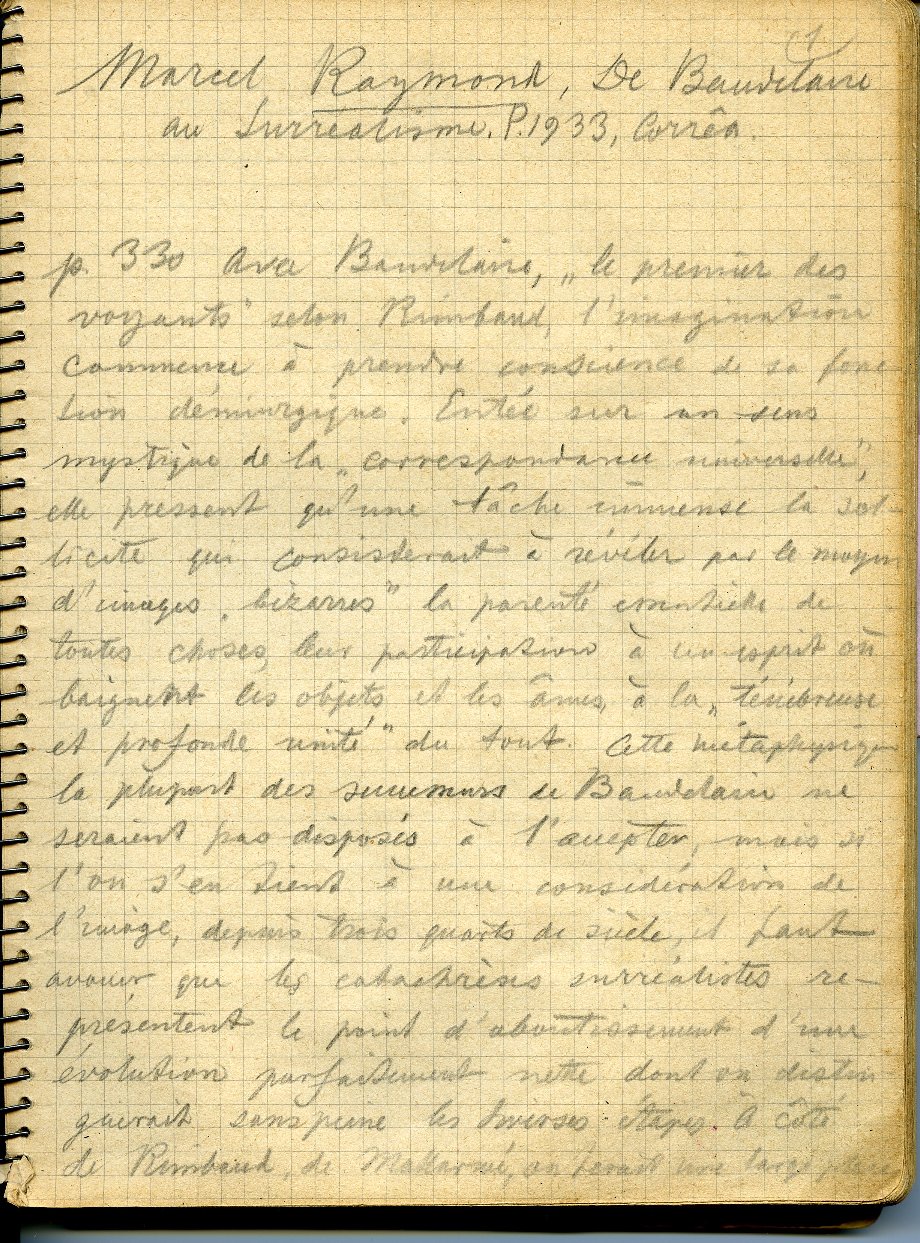 (1)
Marcel Raymond, De Baudelaire
au Surréalisme. P. 1933, Corrêa.
p. 330 Avec Baudelaire, „le premier des
voyants" selon Rimbaud, l'imagination
commence à prendre conscience de sa fonc-
tion démiurgique. Entée sur un sens
mystique de la „correspondance universelle",
elle pressent qu'une tâche immense la sol-
licite qui consisterait à révéler par le moyen
d'images „bizarres" la parenté essentielle de
toutes choses, leur participation à un esprit où
baignent les objets et les âmes, à la „ténébreuse
et profonde unité" du tout. Cette métaphysique
la plupart des successeurs de Baudelaire ne
seraient pas disposés à l'accepter, mais si
l'on s'en tient à une considération de
l'image, depuis trois quarts de siècle, il faut
avouer que les catachrèses surréalistes re-
présentent le point d'aboutissement d'une
évolution parfaitement nette dont on distin
guerait sans peine les diverses étapes. A côté
de Rimbaud, de Mallarmé, on ferait une large place